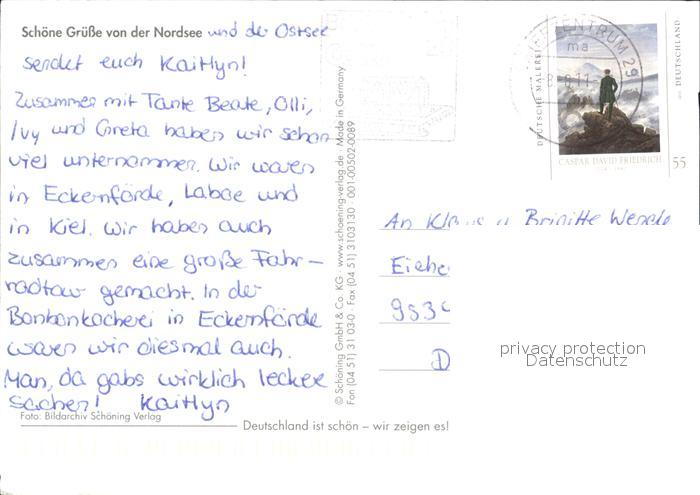 Schöne Grüße von der Nordsee und der Ostsee
sendet euch Kaitlyn!
Zusammen mit Tante Beate, Olli,
Ivy und Greta haben wir schon
viel unternommen. Wir waren
in Eckernförde, Laboe und
in Kiel. Wir haben auch
zusammen eine große Fahr-
radtour gemacht. In der
Bonbonkocherei in Eckernförde
waren wir diesmal auch.
Man, da gabs wirklich leckere
Sachen! Kaitlyn
Foto: Bildarchiv Schöning Verlag
Deutschland ist schön – wir zeigen es!
© Schöning GmbH & Co. KG · www.schoening-verlag.de · Made in Germany
Fon (04 51) 31 03-0 · Fax (04 51) 3103130 · 001-00502-0089
ZENTRUM 29
ma
8.11
DEUTSCHE MALEREI
DEUTSCHLAND
CASPAR DAVID FRIEDRICH
55
An Klaus u. Brigitte
Eiche
D
privacy protection
Datenschutz